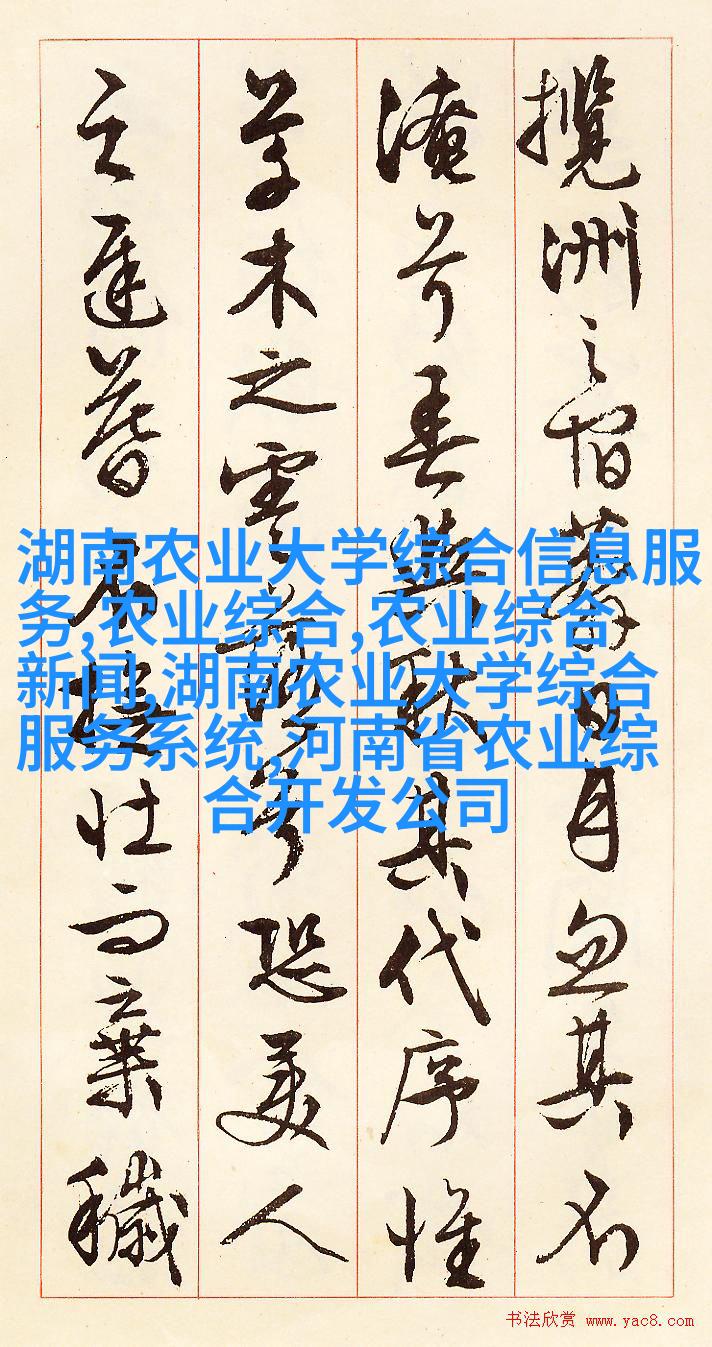 攬洲之宿莽日月忽其不
淹兮春與秋其代序惟
草木之零落兮恐美人
之遲暮不撫壯而棄穢
湖南农业大学综合信息服
务,农业综合,农业综合
新闻,湖南农业大学综合
服务系统,河南省农业综
合开发公司
书法欣赏 www.yac8.com